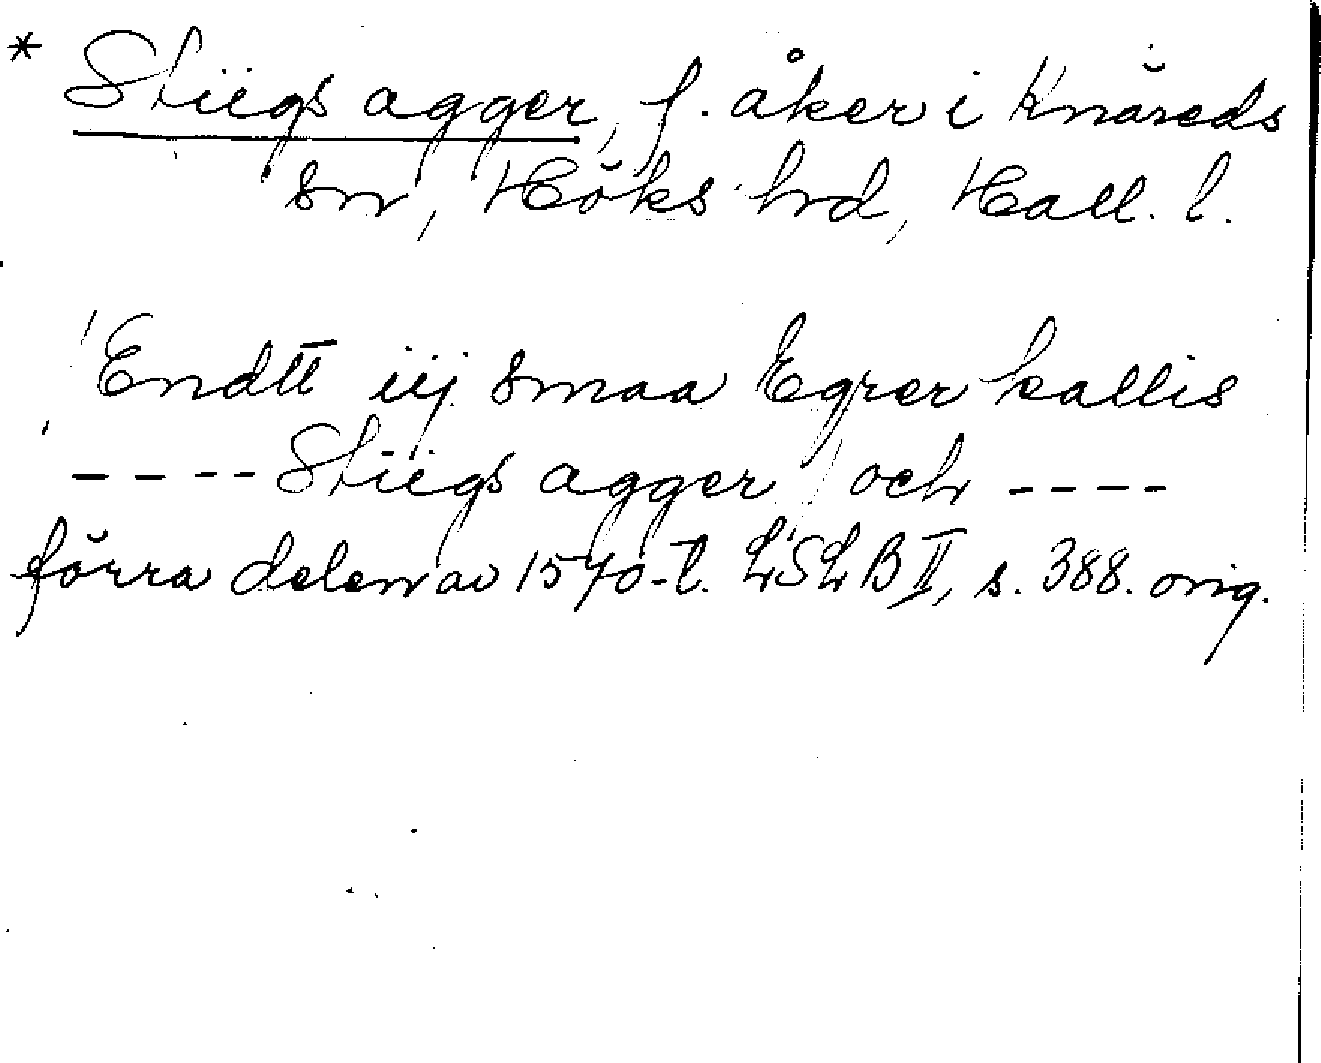 * Stiigs agger, f. åker i Knäreds
sn, Höks hrd, Hall. l.
Endtt iij smaa Egrer kallis
---- Stiigs agger och ----
förra delen av 1570-t. LSLB II, s. 388. orig.